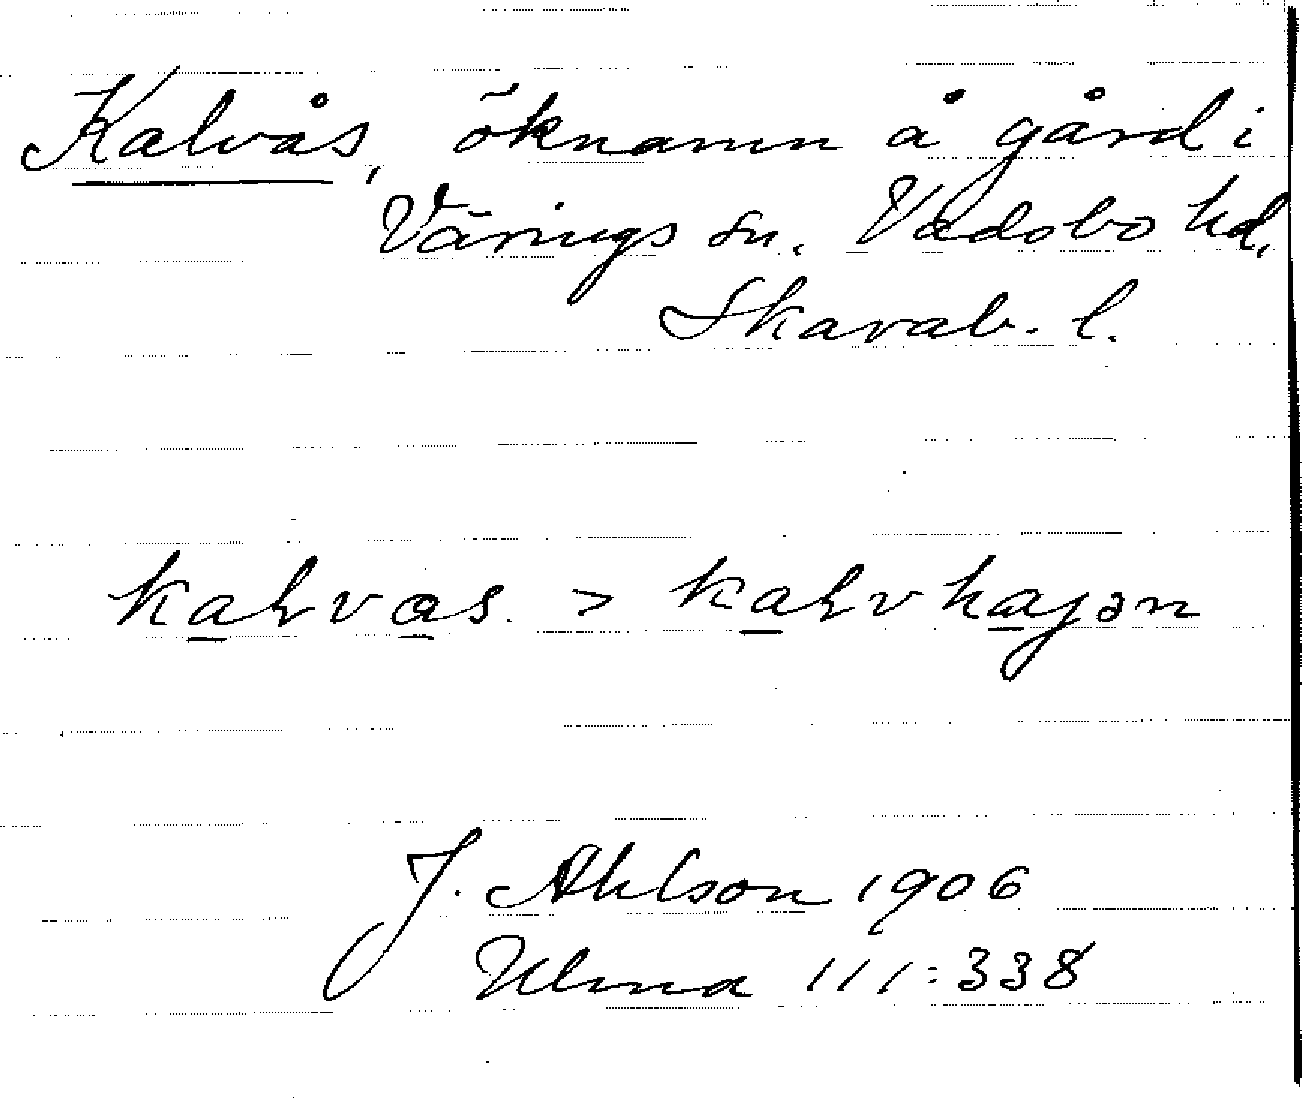 Kalvås, öknamn å gård i
Värings sn. Vadsbo hd.
Skarab. l.
kaɽvas. > kaɽvhajən
J. Ahlson 1906
Ulma 111:338